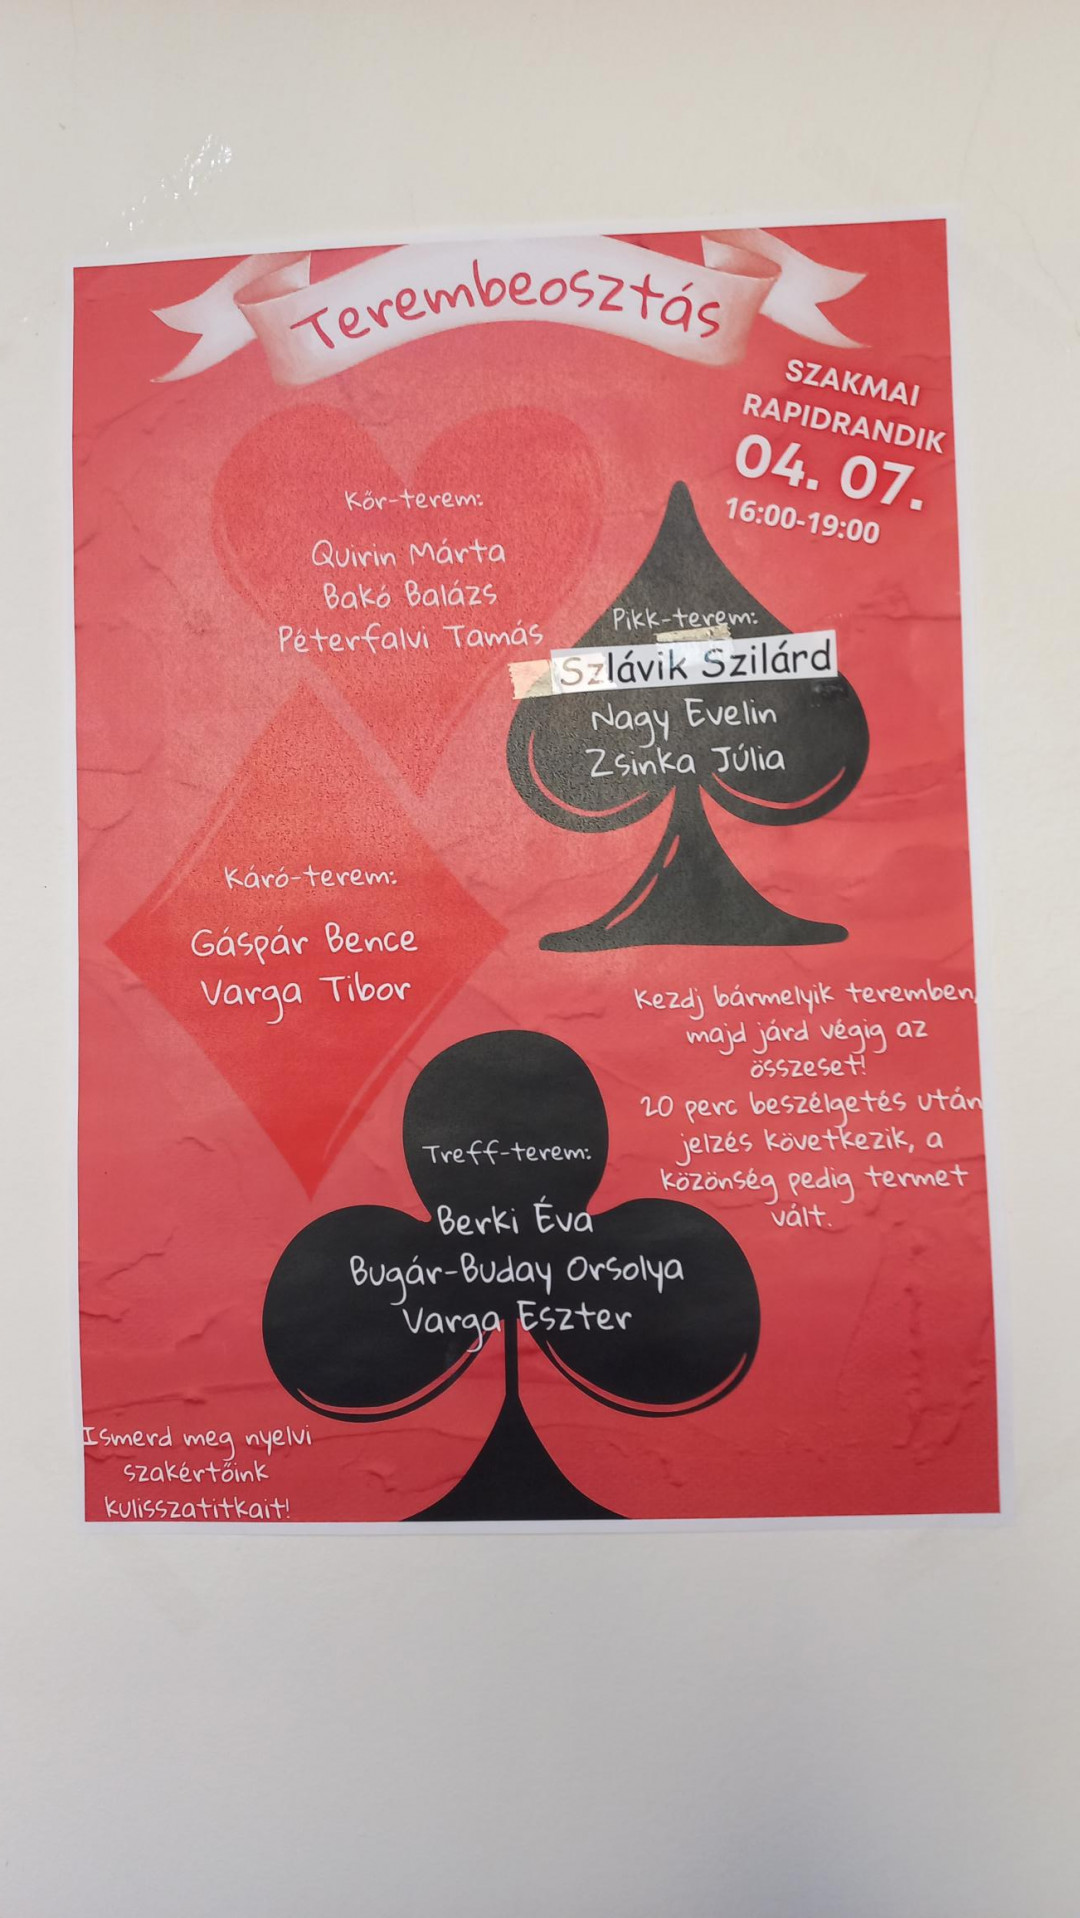 Terembeosztás
SZAKMAI
RAPIDRANDIK
04. 07.
16:00-19:00
Kőr-terem:
Quirin Márta
Bakó Balázs
Péterfalvi Tamás
Pikk-terem:
Szlávik Szilárd
Nagy Evelin
Zsinka Júlia
Káró-terem:
Gáspár Bence
Varga Tibor
Kezdj bármelyik teremben,
majd járd végig az
összeset!
20 perc beszélgetés után
jelzés következik, a
közönség pedig termet
vált.
Treff-terem:
Berki Éva
Bugár-Buday Orsolya
Varga Eszter
Ismerd meg nyelvi
szakértőink
kulisszatitkait!